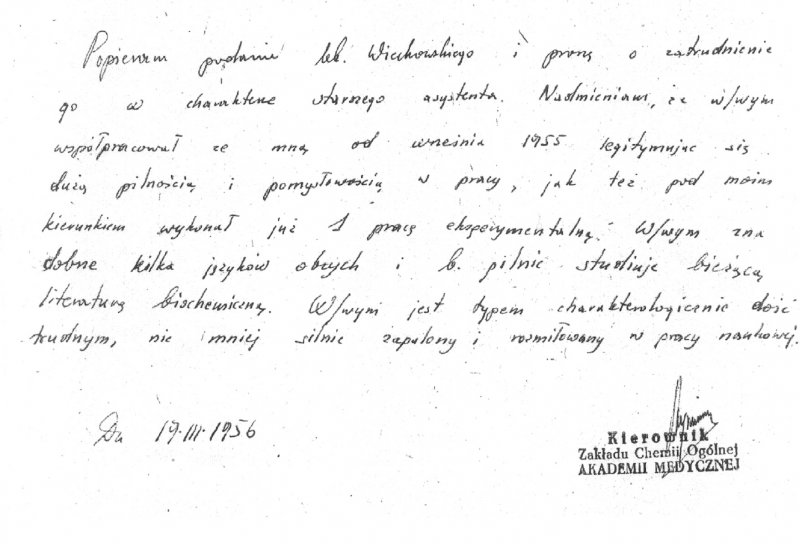 Popieram podanie lek. Wieckowskiego i proszę o zatrudnienie
go w charakterze starszego asystenta. Nadmieniam, że w/wym
współpracował ze mną od września 1955 legitymując się
dużą pilnością i pomysłowością w pracy, jak też pod moim
kierunkiem wykonał już 1 pracę eksperymentalną. W/wym zna
dobrze kilka języków obcych i b. pilnie studiuje bieżącą
literaturę biochemiczną. W/wym jest typem charakterologicznie dość
trudnym, nie mniej silnie zapalony i rozmiłowany w pracy naukowej.
Dn 19.III.1956
Kierownik
Zakładu Chemii Ogólnej
AKADEMII MEDYCZNEJ